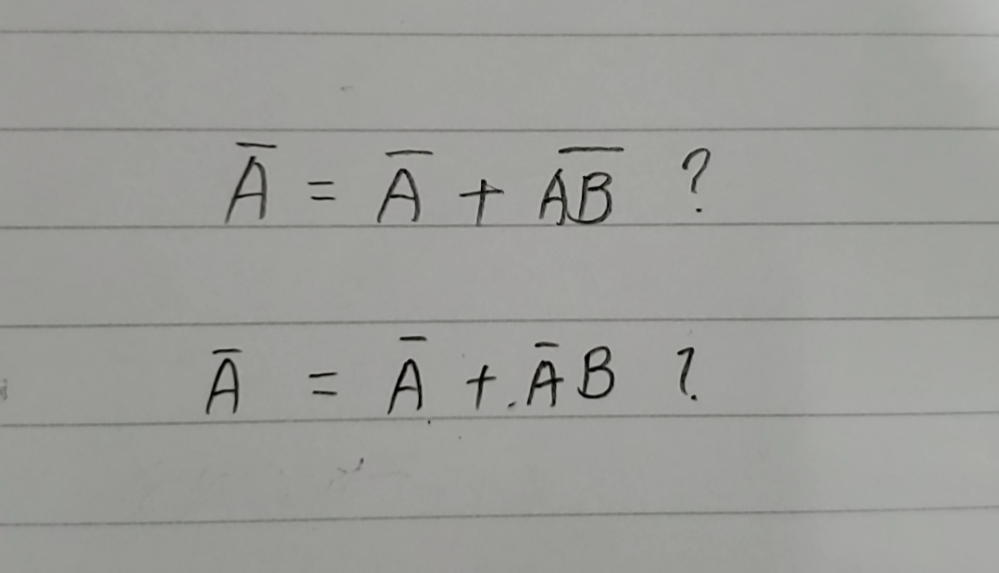 A̅ = A̅ + A̅B̅ ?
A̅ = A̅ + A̅B ?